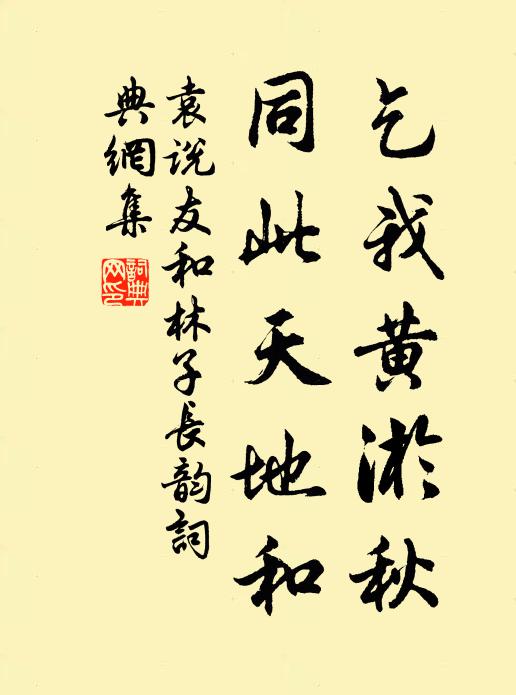 乞我黄淤秋
同此天地和
袁説友和林子長韵詞
典網集
詞典网印